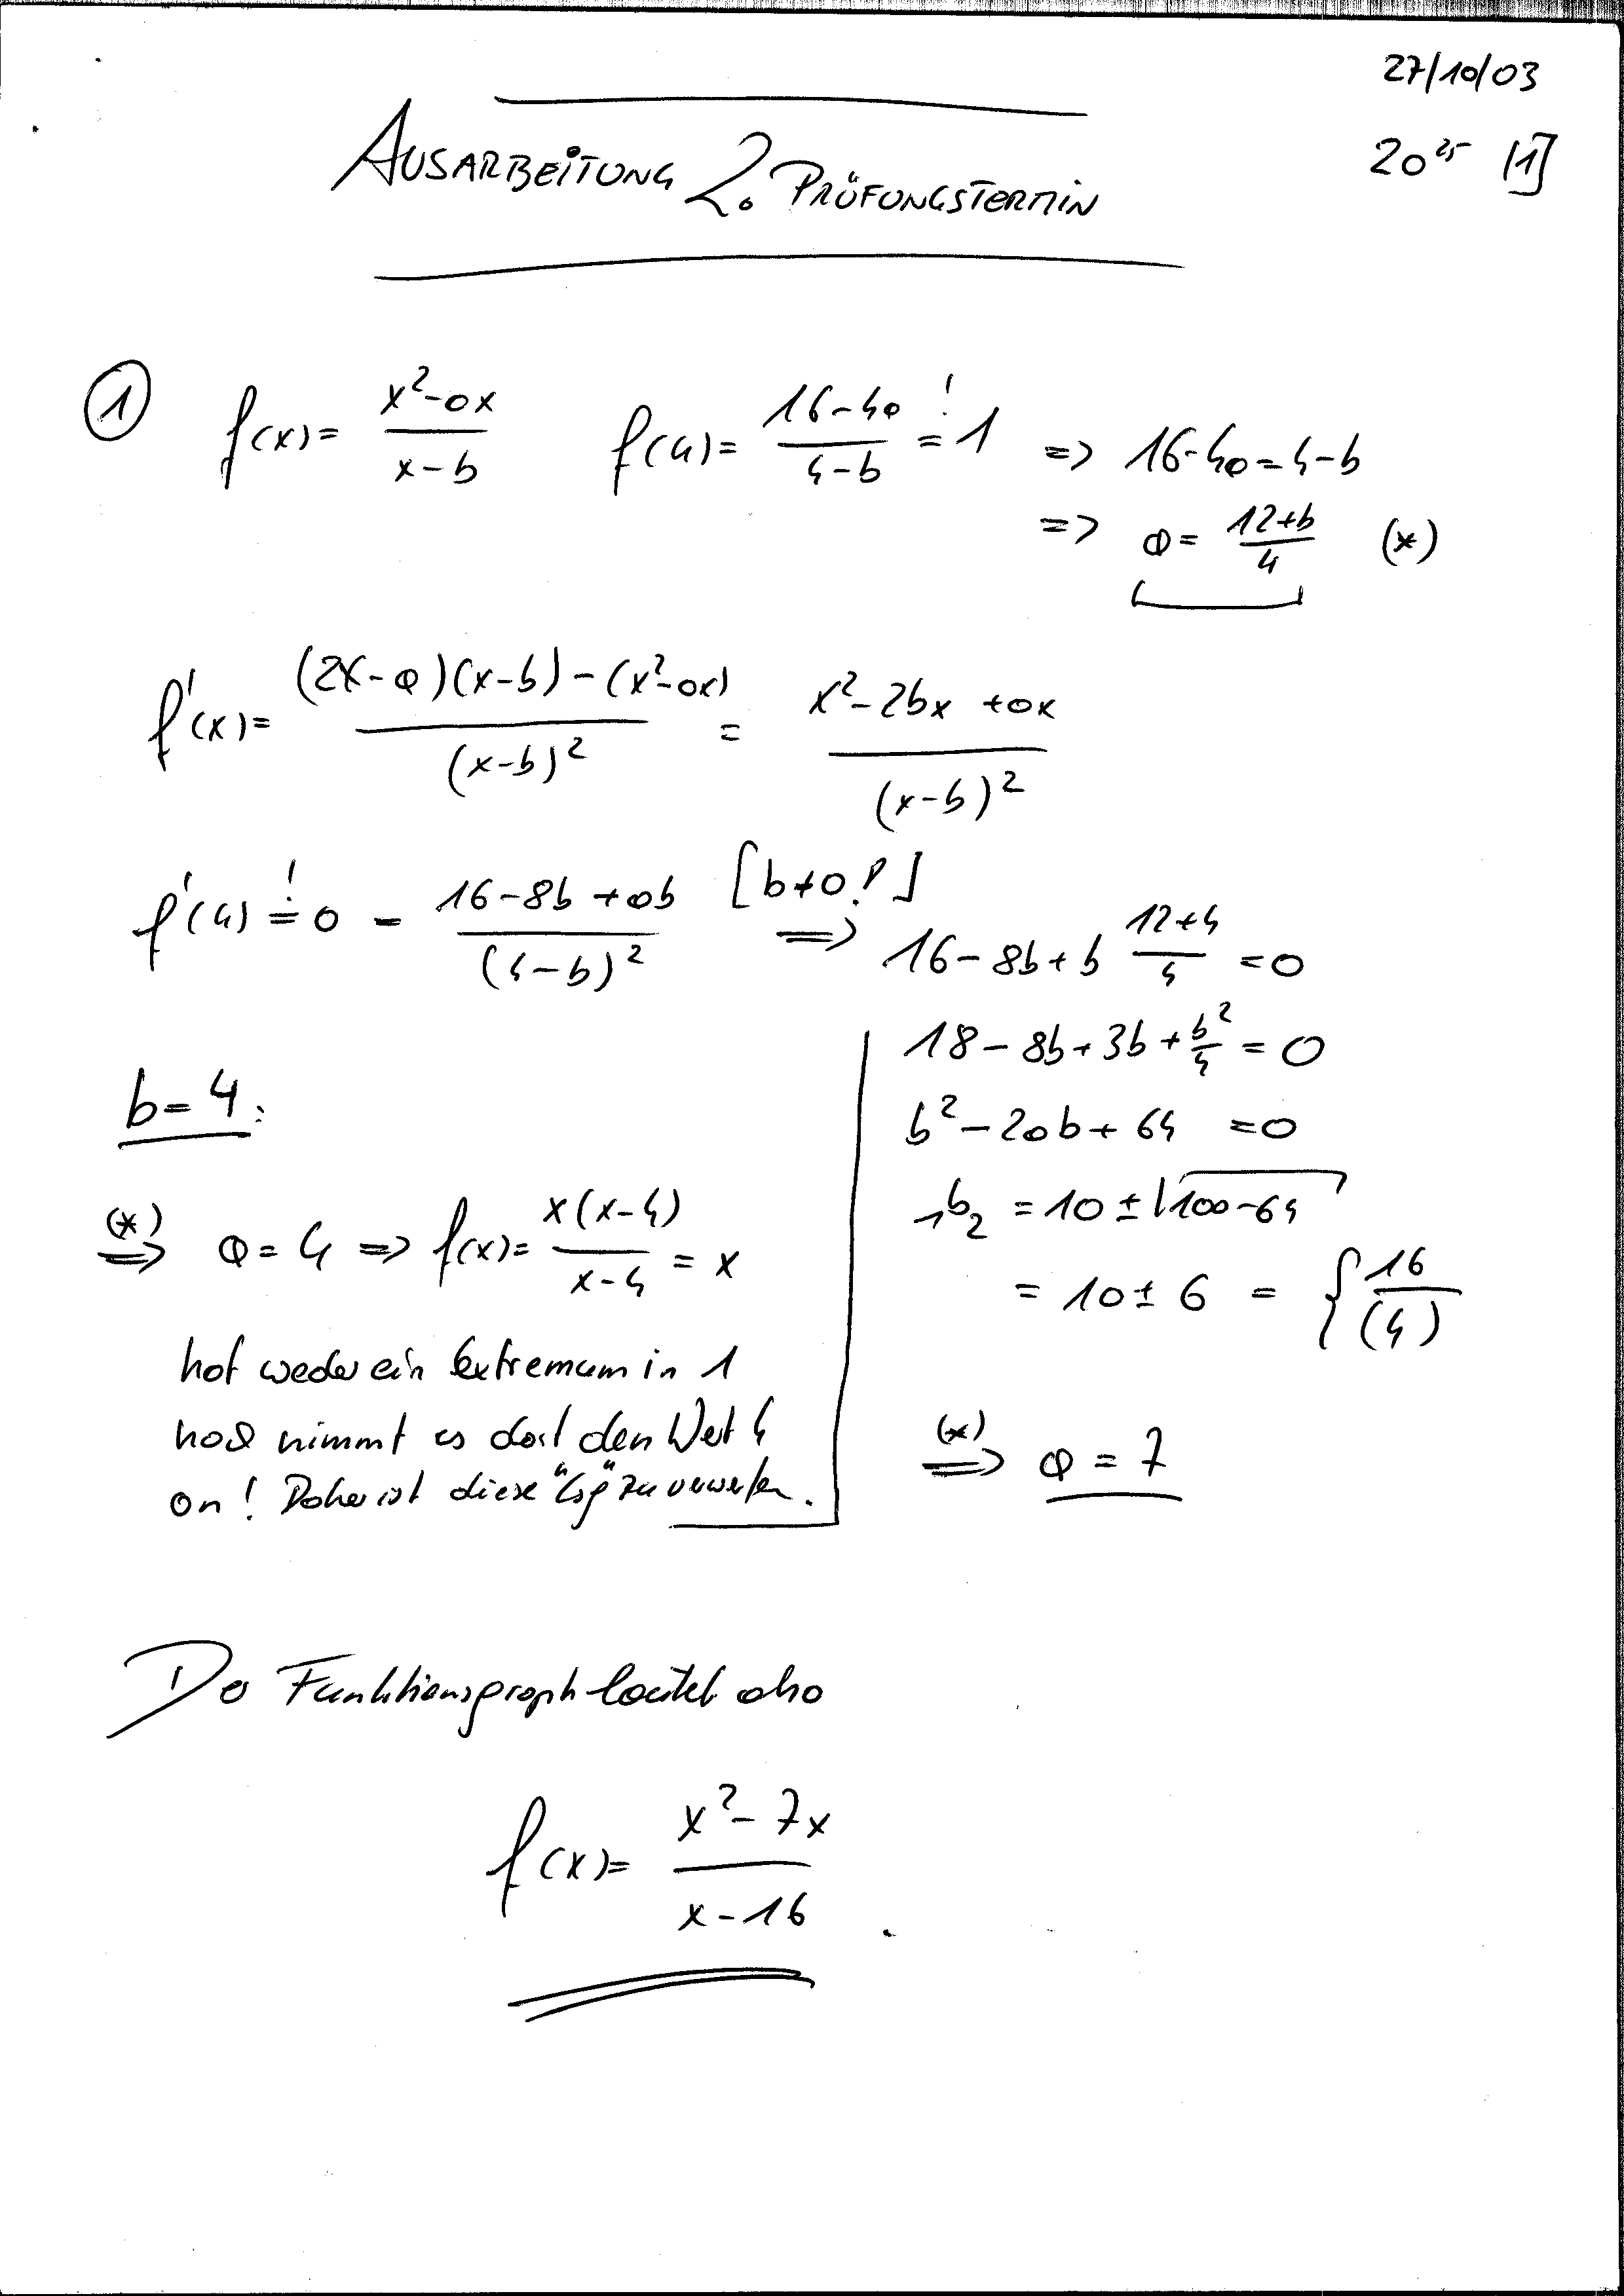 27/10/03
AUSARBEITUNG 2. PRÜFUNGSTERMIN
20²⁵ [1]
① f(x) = (x²-ax)/(x-b) f(4) = (16-4a)/(4-b) =! 1 => 16-4a = 4-b
=> a = (12+b)/4 (*)
f'(x) = ((2x-a)(x-b) - (x²-ax))/(x-b)² = (x²-2bx+ax)/(x-b)²
f'(4) =! 0 = (16-8b+ab)/(4-b)² [b≠0!] => 16-8b+b (12+4)/4 = 0
18-8b+3b+b²/4 = 0
b²-20b+64 = 0
₁b₂ = 10 ± √(100-64)
= 10 ± 6 = { 16 / (4)
(*) => a = 7
b = 4:
(*) => a = 4 => f(x) = x(x-4)/(x-4) = x
hat weder ein Extremum in 1
noch nimmt es dort den Wert 4
an! Daher ist diese "Lsg" zu verwerfen.
Der Funktionsgraph lautet also
f(x) = (x²-7x)/(x-16) .